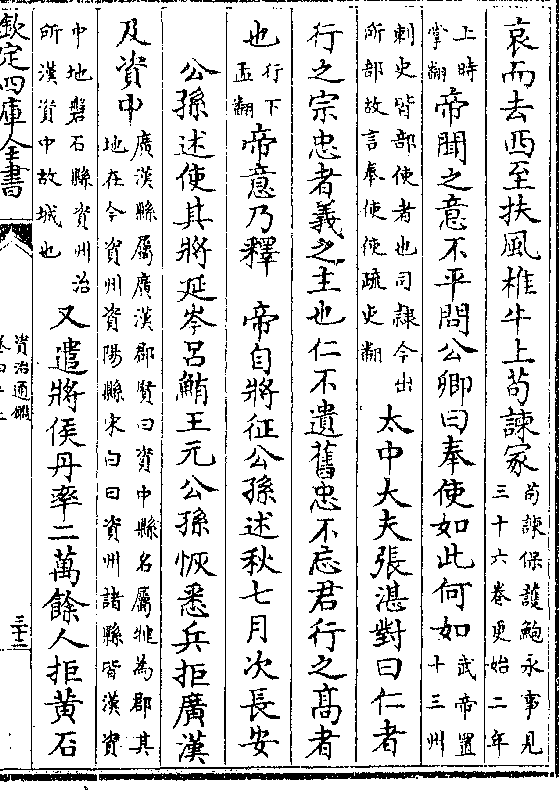 哀而去西至扶風椎牛上苟諫冢苟諫保護鮑永事見三十六卷更始二年
上時掌翻帝聞之意不平問公卿曰奉使如此何如武帝置十三州
刺史皆部使者也司隸今出所部故言奉使使疏吏翻太中大夫張湛對曰仁者
行之宗忠者義之主也仁不遺舊忠不忘君行之高者
也行下孟翻帝意乃釋　帝自將征公孫述秋七月次長安
公孫述使其將延岑呂鮪王元公孫恢悉兵拒廣漢
及資中廣漢縣屬廣漢郡賢曰資中縣名屬犍為郡其地在今資州資陽縣宋白曰資州諸縣皆漢資
中地磐石縣資州治所漢資中故城也又遣將侯丹率二萬餘人拒黄石
欽定四庫全書
資治通鑑